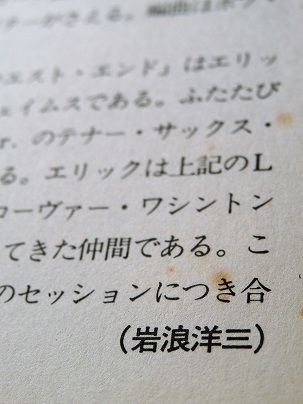 ナーがさえる。編曲はボブ
エスト・エンド』はエリッ
ェイムスである。ふたたび
r. のテナー・サックス・
る。エリックは上記のL
ローヴァー・ワシントン
てきた仲間である。こ
のセッションにつき合
（岩浪洋三）